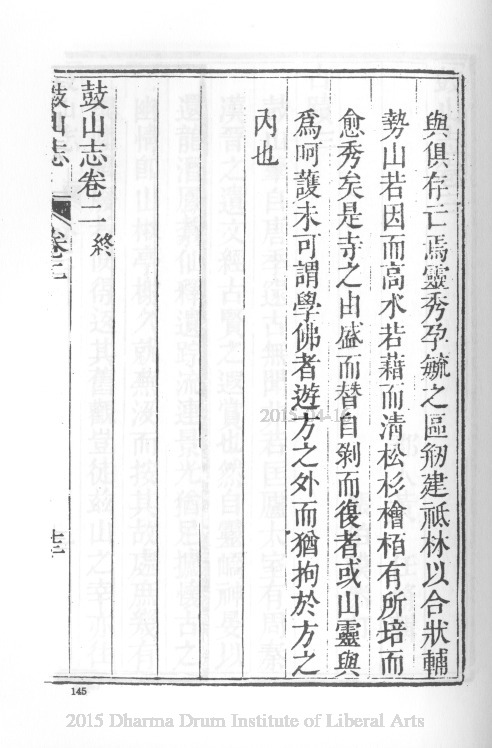 與俱存亡焉靈秀孕毓之區剏建祗林以合狀輔
勢山若因而高水若藉而清松杉檜栢有所培而
愈秀矣是寺之由盛而替自剝而復者或山靈與
爲呵護未可謂學佛者遊方之外而猶拘於方之
內也
鼓山志卷二 終
鼓山志 卷二 七二
145
2015-04-16
2015 Dharma Drum Institute of Liberal Arts